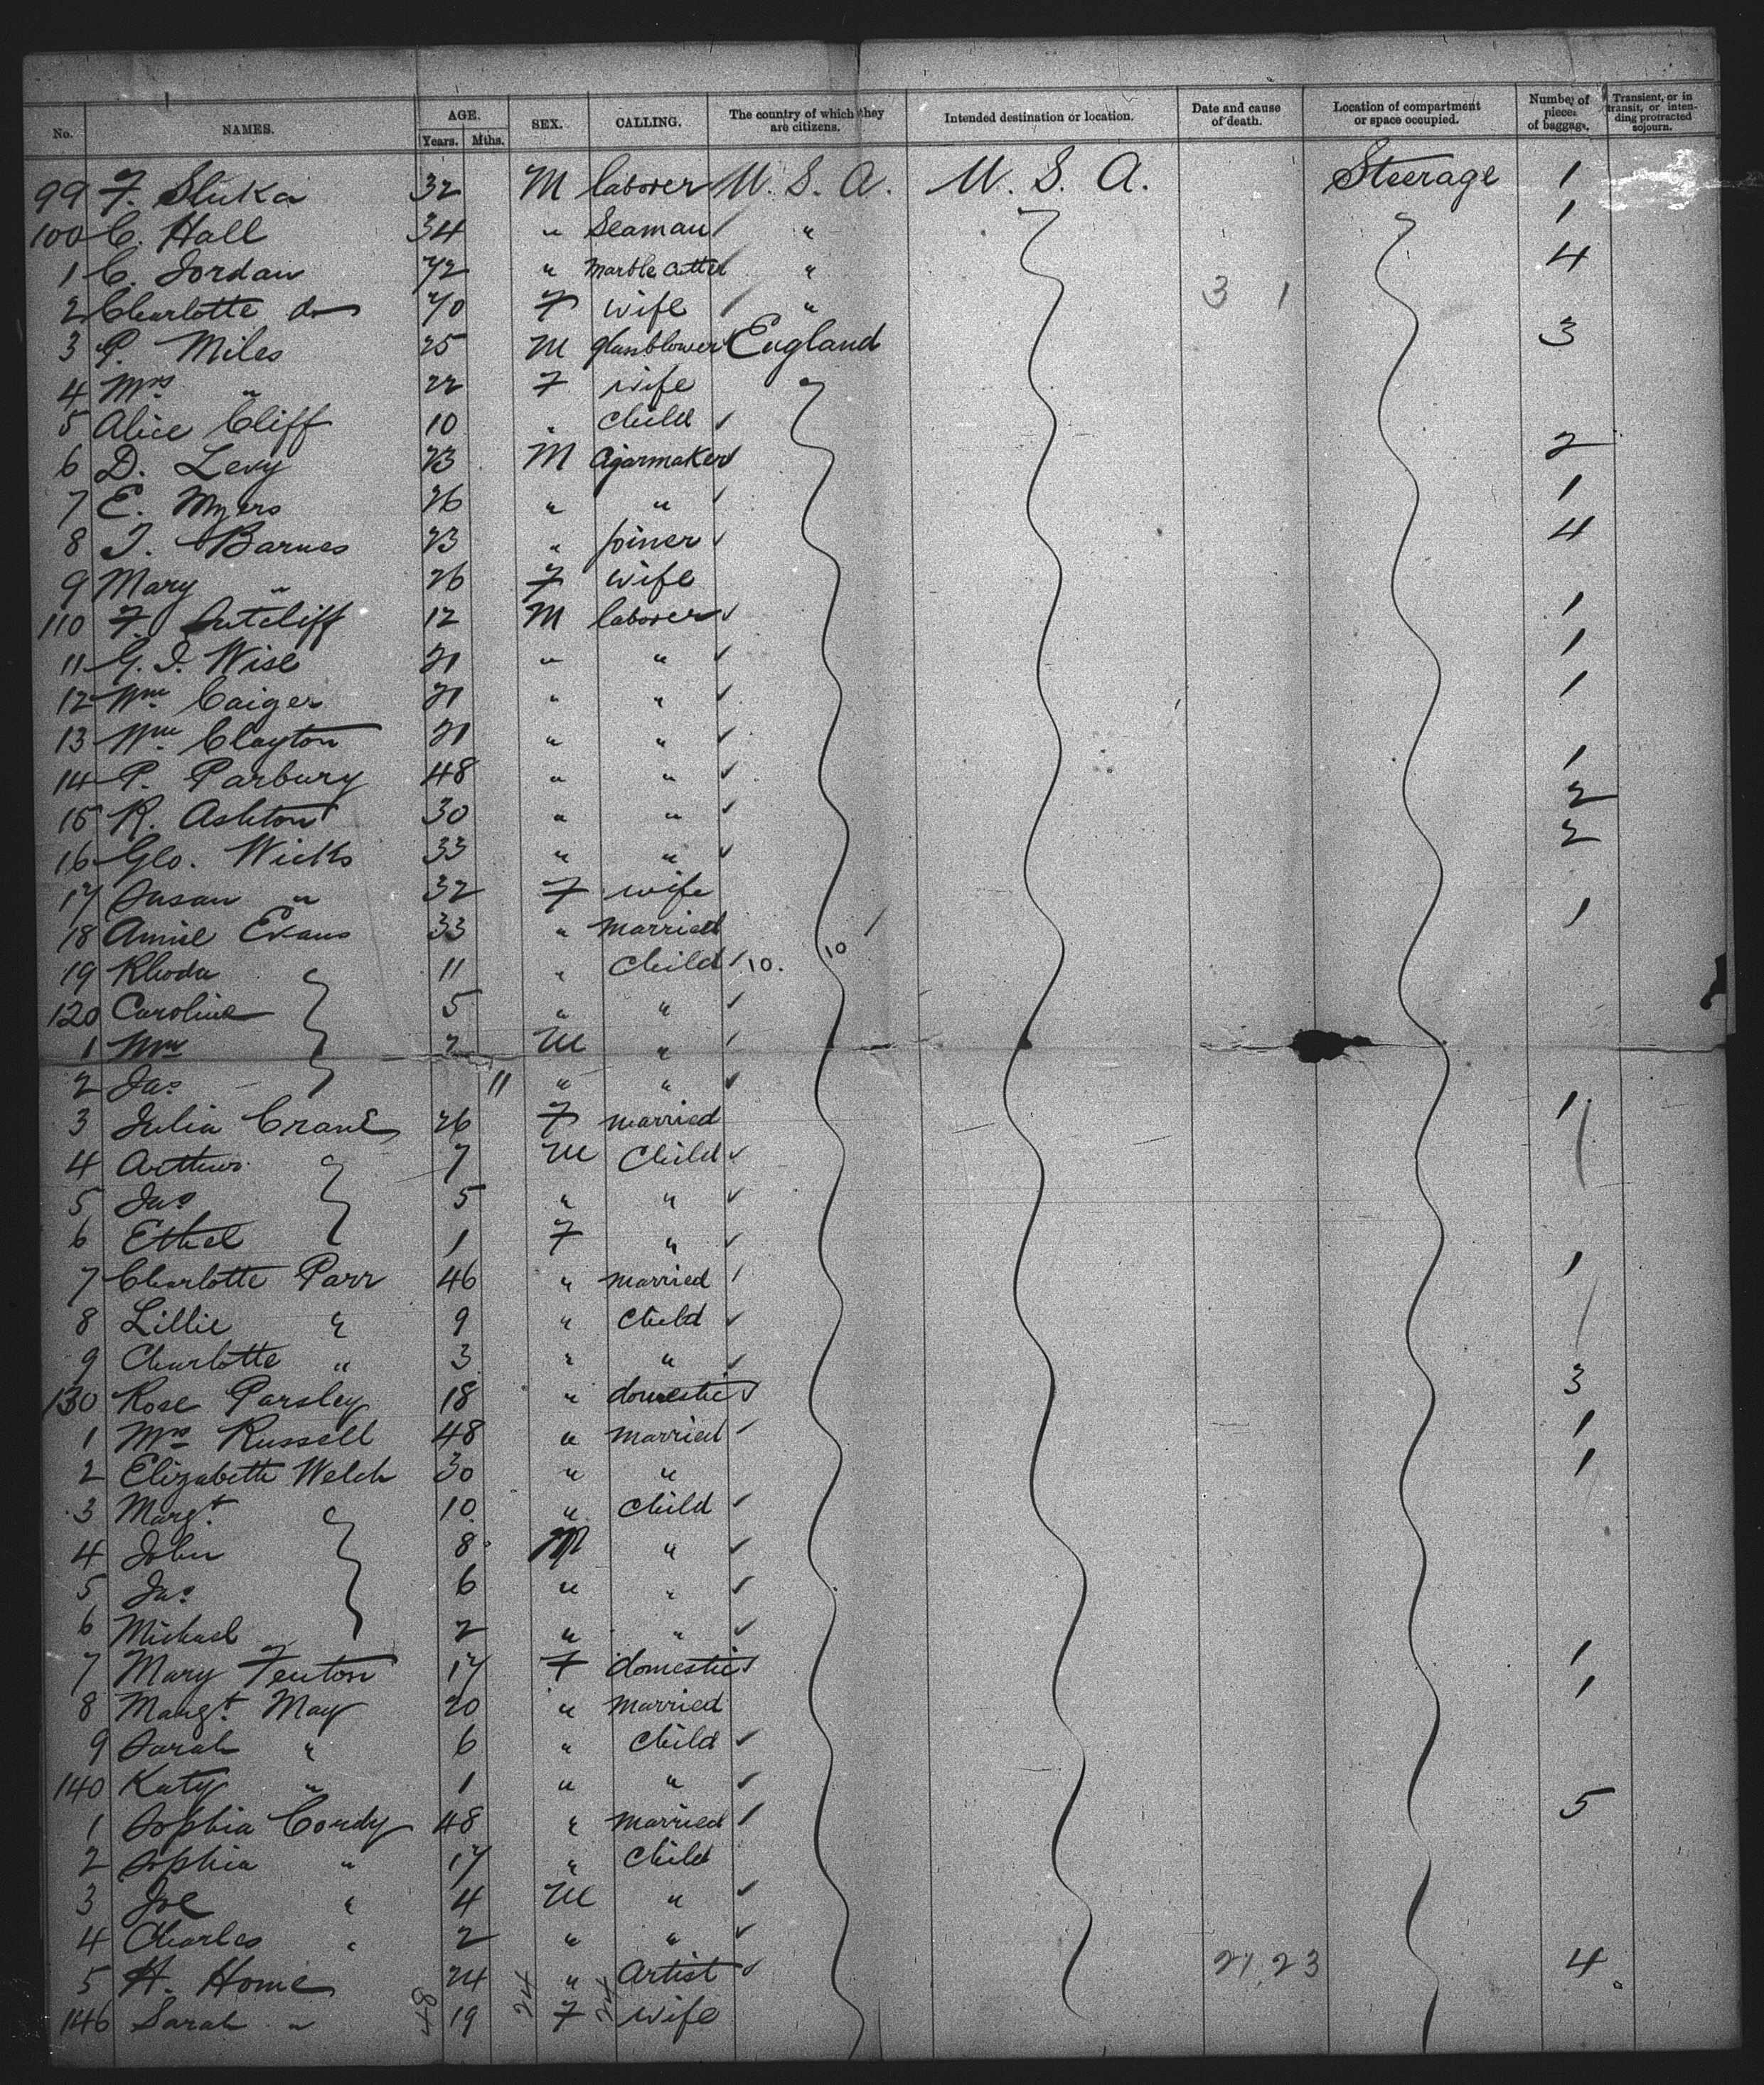 No. NAMES. AGE. Years. Mths. SEX. CALLING. The country of which they are citizens. Intended destination or location. Date and cause of death. Location of compartment or space occupied. Number of pieces of baggage. Transient, or in transit, or intending protracted sojourn.
99 F. Sluka 32 M laborer U. S. A. U. S. A. Steerage 1
100 C. Hall 34 " Seaman " 1
1 C. Jordan 72 " Marble Cutter " 4
2 Charlotte do 70 F wife " 3 1
3 P. Miles 25 M glassblower England 3
4 Mrs " 22 F wife
5 Alice Cliff 10 " child
6 D. Levy 23 M Cigarmaker 2
7 E. Myers 26 " " 1
8 T. Barnes 23 " joiner 4
9 Mary " 26 F wife
110 F. Sutcliff 12 M laborer 1
11 G. I. Wise 21 " " 1
12 Wm Caiger 21 " " 1
13 Wm Clayton 21 " "
14 P. Parbury 48 " " 1
15 R. Ashton 30 " " 2
16 Geo. Wicks 33 " " 2
17 Susan " 32 F wife
18 Annie Evans 33 " married 1
19 Rhoda 11 " Child 10. 10
120 Caroline 5 " "
1 Wm 2 M "
2 Jas 11 " "
3 Julia Crane 26 F married 1
4 Arthur 7 M Child
5 Jas 5 " "
6 Ethel 1 F "
7 Charlotte Parr 46 " married 1
8 Lillie " 9 " Child
9 Charlotte " 3 " "
130 Rose Parsley 18 " domestic 3
1 Mrs Russell 48 " married 1
2 Elizabeth Welch 30 " " 1
3 Margt. 10 " child
4 John 8 M "
5 Jas 6 " "
6 Michael 2 " "
7 Mary Fenton 17 F domestic 1
8 Margt. May 20 " married 1
9 Sarah " 6 " Child
140 Katy " 1 " "
1 Sophia Cordy 48 " married 5
2 Sophia " 17 " Child
3 Joe " 4 M "
4 Charles " 2 " "
5 H. Home 24 " Artist 21 23 4
146 Sarah " 48 19 24 F 24 wife